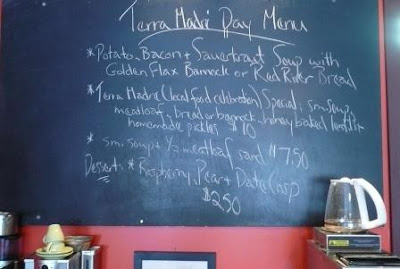 Terra Madri Day Menu
* Potato, Bacon + Sauerkraut Soup with
Golden Flax Bannock or Red River Bread
* Terra Madre (local food celebration) Special; sm soup,
meatloaf, bread or bannock, honey baked lentils
homemade pickles $10
* sm. soup + ½ meatloaf sand $7.50
Dessert * Raspberry, Pear + Date Crisp
$2.50